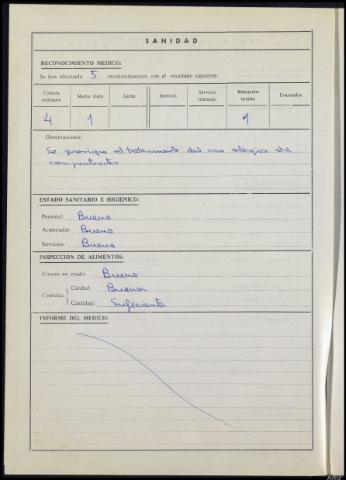 SANIDAD
RECONOCIMIENTO MEDICO:
Se han efectuado 5 reconocimientos, con el resultado siguiente:
Comida ordinaria Media dieta Leche Servicio Servicio limitado Rebajados totales Evacuados
4 1 1
Observaciones:
Se prosigue el tratamiento del caso alergico de
ESTADO SANITARIO E HIGIENICO:
Personal: Bueno
Acampada: Bueno
Servicios: Bueno
INSPECCION DE ALIMENTOS:
Víveres en crudo: Bueno
Comidas: Calidad: Buena
Cantidad: Suficiente
INFORME DEL MEDICO: